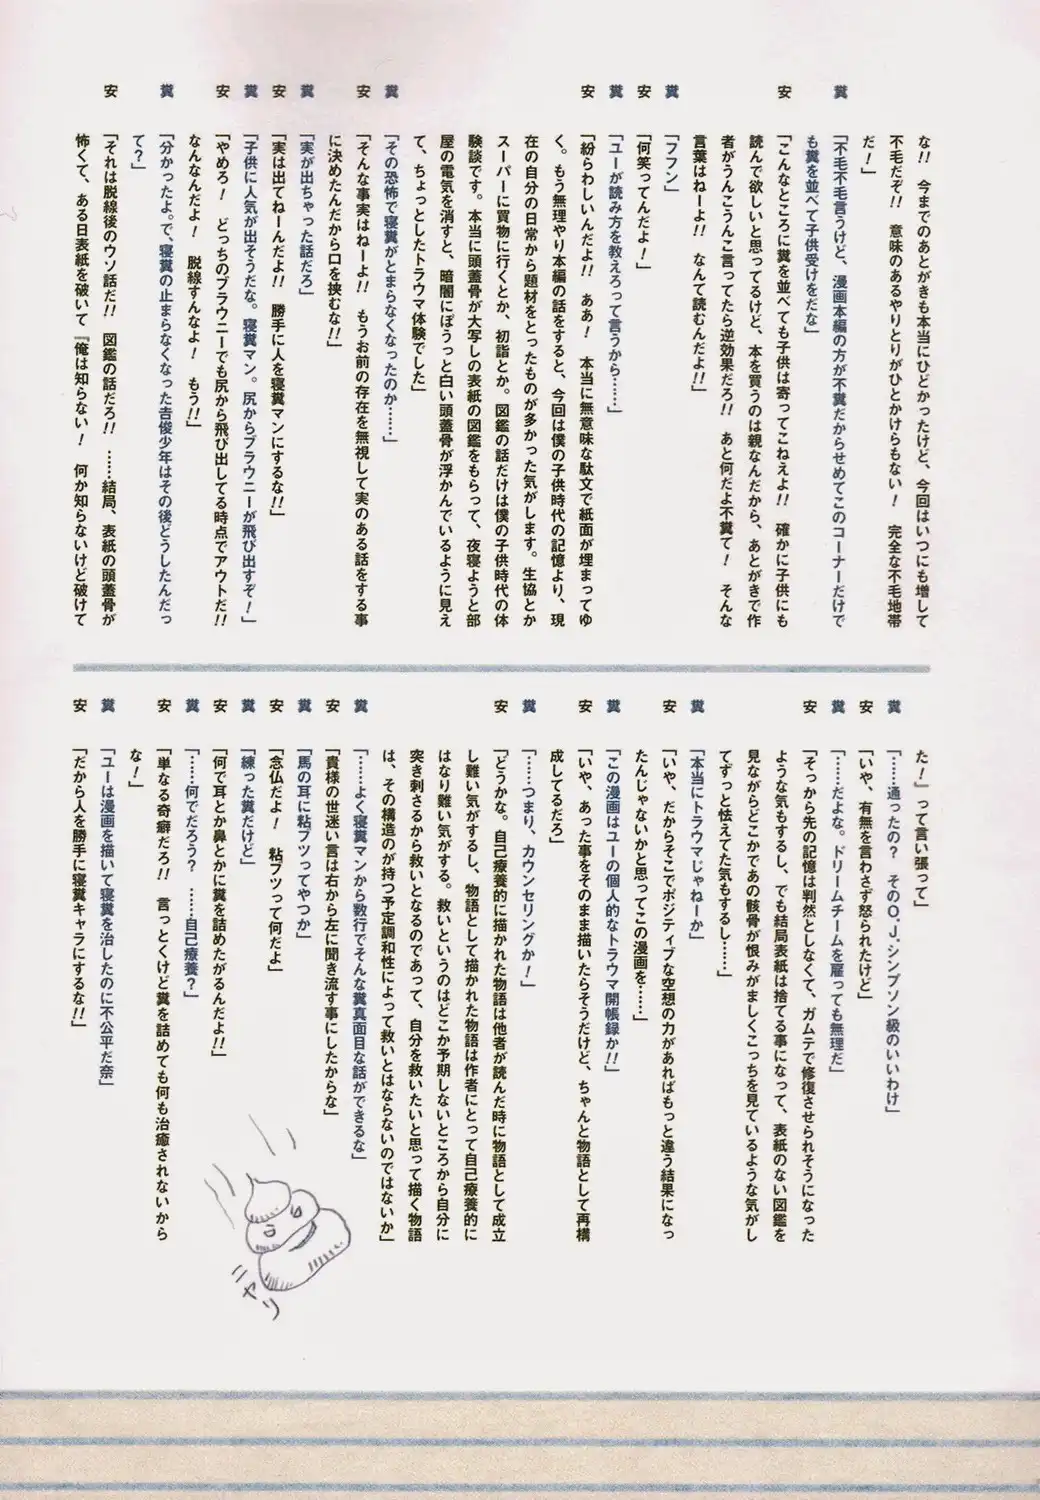 な!!　今までのあとがきも本当にひどかったけど、今回はいつにも増して
不毛だぞ!!　意味のあるやりとりがひとかけらもない！　完全な不毛地帯
だ！」
糞「不毛不毛言うけど、漫画本編の方が不糞だからせめてこのコーナーだけで
も糞を並べて子供受けをだな」
安「こんなところに糞を並べても子供は寄ってこねえよ!!　確かに子供にも
読んで欲しいと思ってるけど、本を買うのは親なんだから、あとがきで作
者がうんこうんこ言ってたら逆効果だろ!!　あと何だよ不糞て！　そんな
言葉はねーよ!!　なんて読むんだよ!!」
糞「フフン」
安「何笑ってんだよ！」
糞「ユーが読み方を教えろって言うから……」
安「紛らわしいんだよ!!　ああ！　本当に無意味な駄文で紙面が埋まってゆ
く。もう無理やり本編の話をすると、今回は僕の子供時代の記憶より、現
在の自分の日常から題材をとったものが多かった気がします。生協とか
スーパーに買物に行くとか、初詣とか。図鑑の話だけは僕の子供時代の体
験談です。本当に頭蓋骨が大写しの表紙の図鑑をもらって、夜寝ようと部
屋の電気を消すと、暗闇にぼうっと白い頭蓋骨が浮かんでいるように見え
て、ちょっとしたトラウマ体験でした」
糞「その恐怖で寝糞がとまらなくなったのか……」
安「そんな事実はねーよ!!　もうお前の存在を無視して実のある話をする事
に決めたんだから口を挟むな!!」
糞「実が出ちゃった話だろ」
安「実は出てねーんだよ!!　勝手に人を寝糞マンにするな!!」
糞「子供に人気が出そうだな。寝糞マン。尻からブラウニーが飛び出すぞ！」
安「やめろ！　どっちのブラウニーでも尻から飛び出してる時点でアウトだ!!
なんなんだよ！　脱線すんなよ！　もう!!」
糞「分かったよ。で、寝糞の止まらなくなった𠮷俊少年はその後どうしたんだっ
て？」
安「それは脱線後のウソ話だ!!　図鑑の話だろ!!　……結局、表紙の頭蓋骨が
怖くて、ある日表紙を破いて『俺は知らない！　何か知らないけど破けて
た！』って言い張って」
糞「……通ったの？　そのO.J.シンプソン級のいいわけ」
安「いや、有無を言わさず怒られたけど」
糞「……だよな。ドリームチームを雇っても無理だ」
安「そっから先の記憶は判然としなくて、ガムテで修復させられそうになった
ような気もするし、でも結局表紙は捨てる事になって、表紙のない図鑑を
見ながらどこかであの骸骨が恨みがましくこっちを見ているような気がし
てずっと怯えてた気もするし……」
糞「本当にトラウマじゃねーか」
安「いや、だからそこでポジティブな空想の力があればもっと違う結果になっ
たんじゃないかと思ってこの漫画を……」
糞「この漫画はユーの個人的なトラウマ開帳録か!!」
安「いや、あった事をそのまま描いたらそうだけど、ちゃんと物語として再構
成してるだろ」
糞「……つまり、カウンセリングか！」
安「どうかな。自己療養的に描かれた物語は他者が読んだ時に物語として成立
し難い気がするし、物語として描かれた物語は作者にとって自己療養的に
はなり難い気がする。救いというのはどこか予期しないところから自分に
突き刺さるから救いとなるのであって、自分を救いたいと思って描く物語
は、その構造のが持つ予定調和性によって救いとはならないのではないか」
糞「……よく寝糞マンから数行でそんな糞真面目な話ができるな」
安「貴様の世迷い言は右から左に聞き流す事にしたからな」
糞「馬の耳に粘ブツってやつか」
安「念仏だよ！　粘ブツって何だよ」
糞「練った糞だけど」
安「何で耳とか鼻とかに糞を詰めたがるんだよ!!」
糞「……何でだろう？　……自己療養？」
安「単なる奇癖だろ!!　言っとくけど糞を詰めても何も治癒されないから
な！」
糞「ユーは漫画を描いて寝糞を治したのに不公平だ奈」
安「だから人を勝手に寝糞キャラにするな!!」
ニヤリ